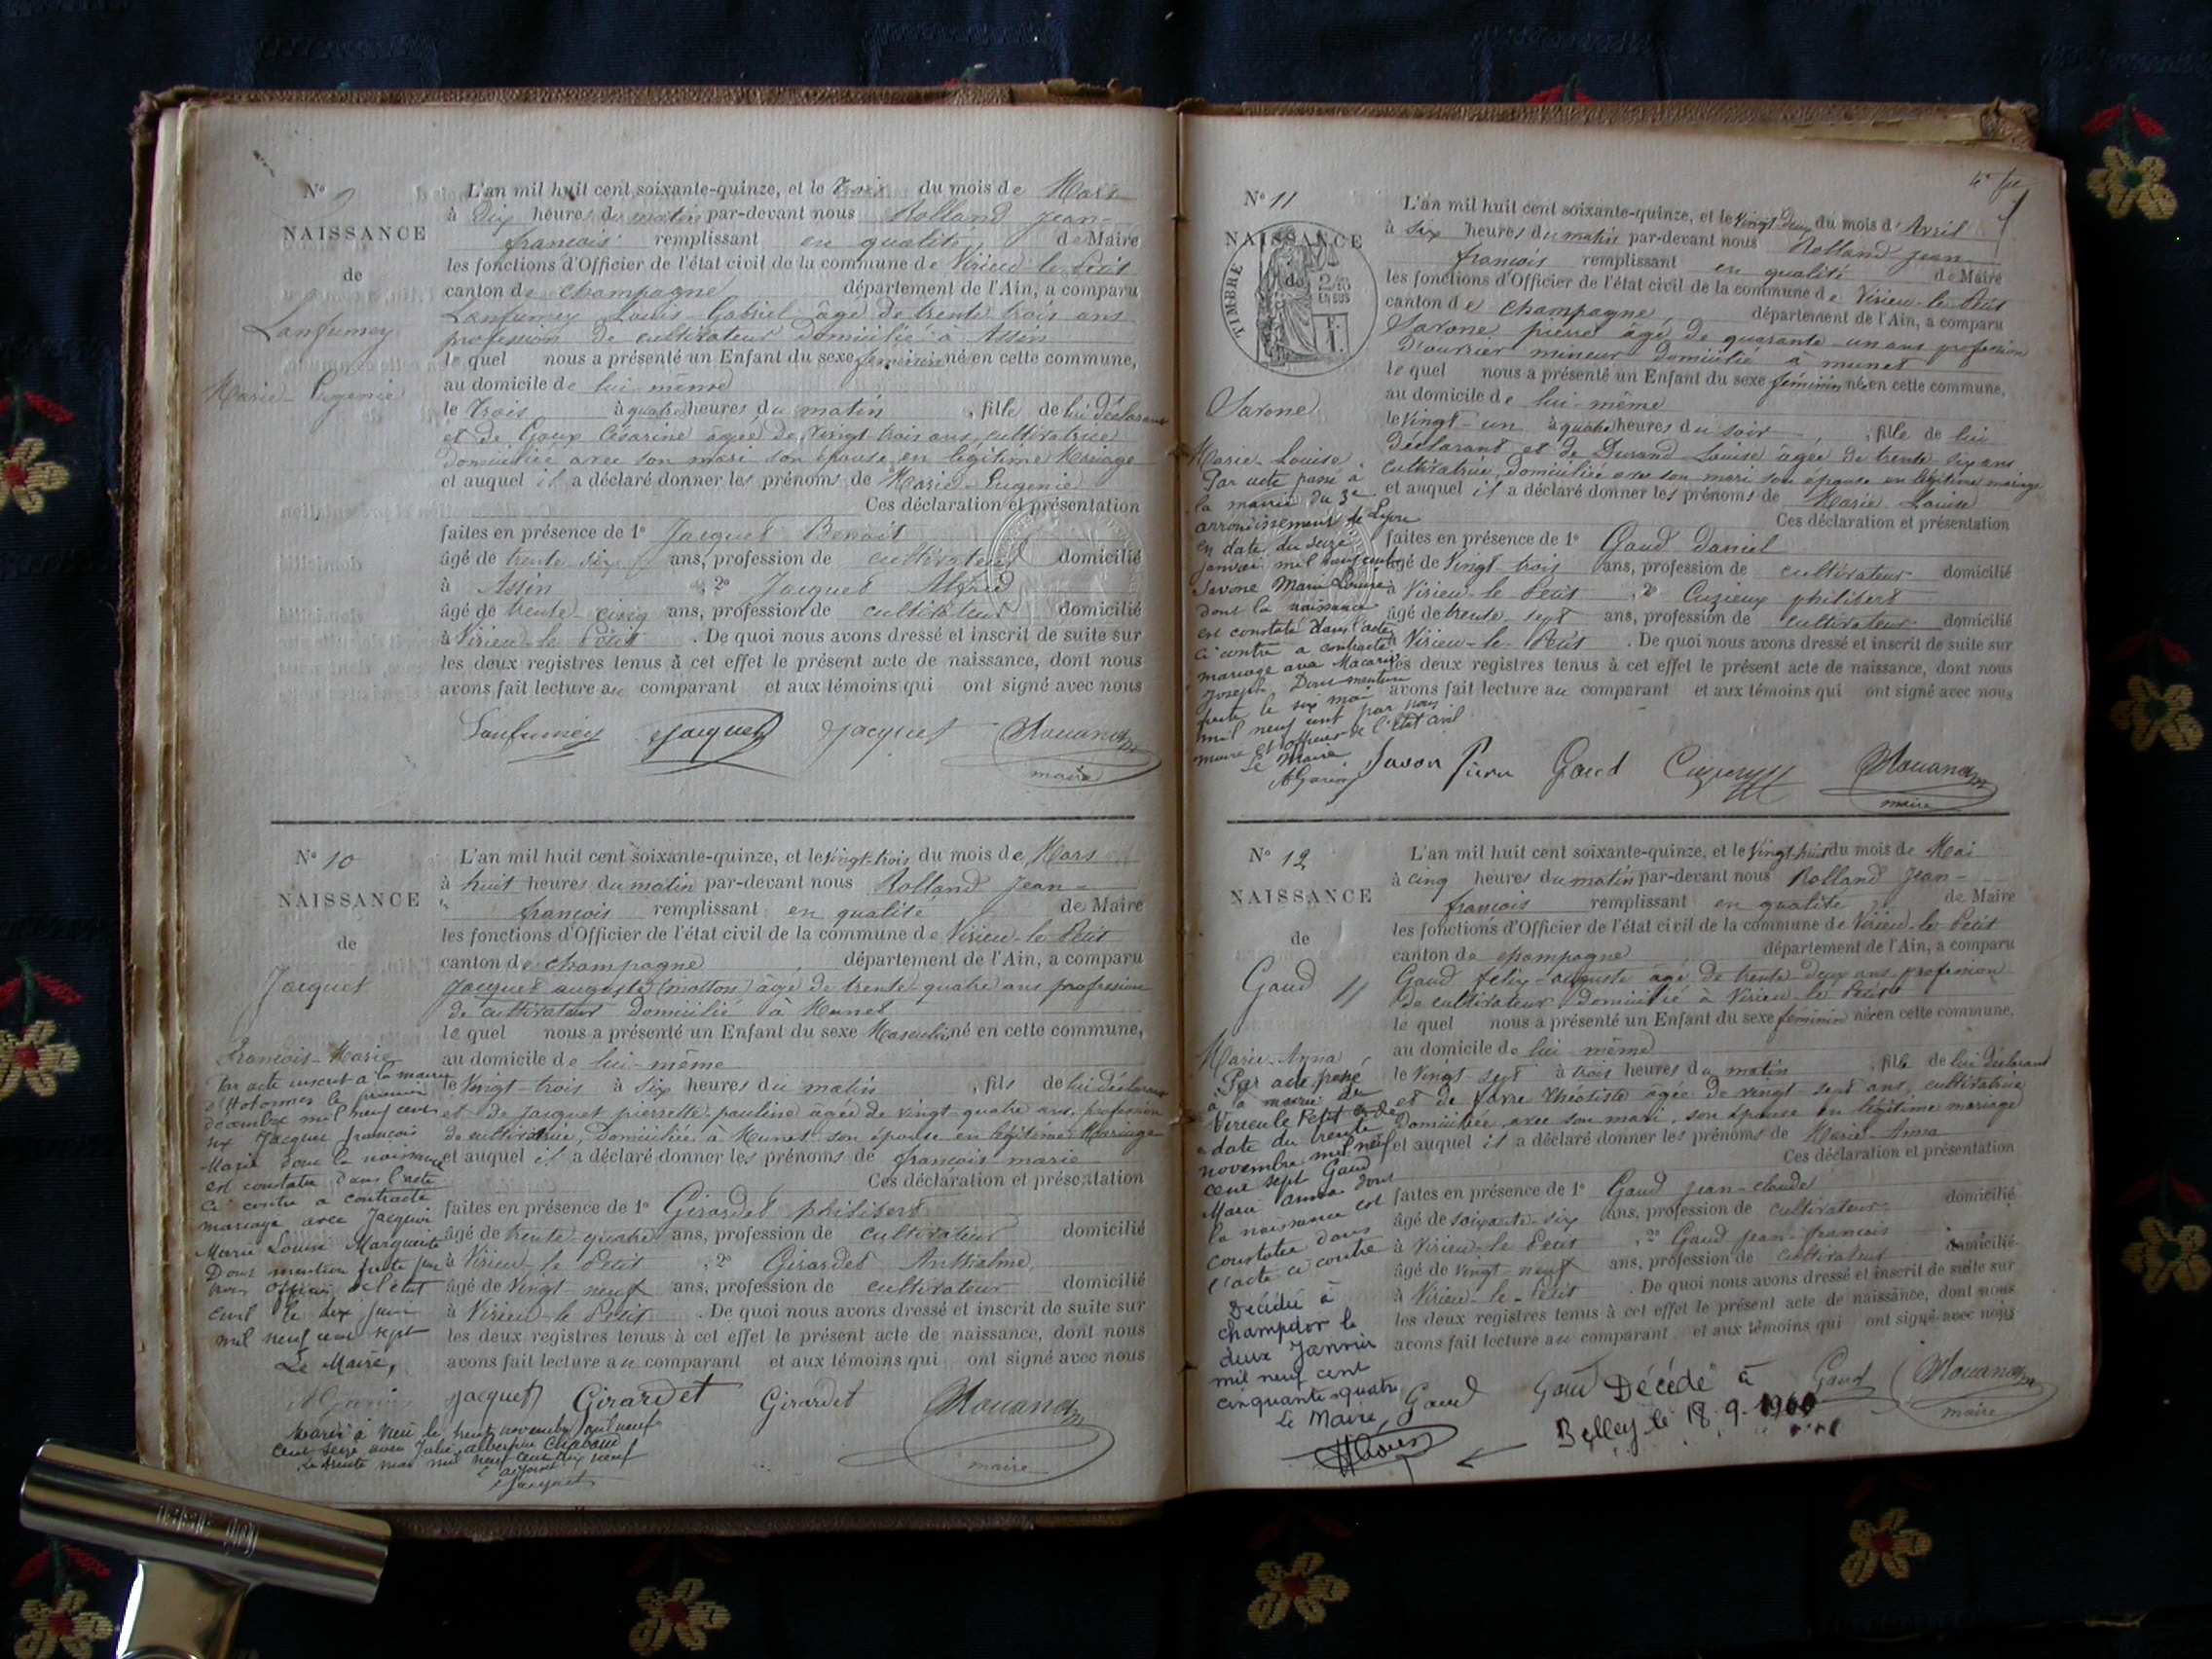 N° 9
NAISSANCE
de
Lanfumey
Marie-Eugenie
L'an mil huit cent soixante-quinze, et le Trois du mois de Mars
à Dix heures du matin par-devant nous Rolland Jean-
francois remplissant en qualité de Maire
les fonctions d'Officier de l'état civil de la commune de Virieu-le-Petit
canton de champagne département de l'Ain, a comparu
Lanfumey Louis-Gabriel âgé de trente trois ans
profession de cultivateur domicilié à Assin
le quel nous a présenté un Enfant du sexe féminin né en cette commune,
au domicile de lui-même
le Trois à quatre heures du matin, fille de lui déclarant
et de Goux Césarine âgée de vingt-trois ans, cultivatrice
domiciliée avec son mari son épouse en légitime Mariage
et auquel il a déclaré donner les prénoms de Marie-Eugenie
Ces déclaration et présentation
faites en présence de 1° Jacquet Benoit
âgé de trente six ans, profession de cultivateur domicilié
à Assin 2° Jacquet Alfred
âgé de trente-cinq ans, profession de cultivateur domicilié
à Virieu-le-Petit. De quoi nous avons dressé et inscrit de suite sur
les deux registres tenus à cet effet le présent acte de naissance, dont nous
avons fait lecture au comparant et aux témoins qui ont signé avec nous
Lanfumey Jacquet Jacquet
maire
N° 10
NAISSANCE
de
Jacquet
Francois-Marie
Par acte inscrit à la mairie
d'Hotonnes le premier
décembre mil neuf cent
six Jacquet francois
Marie dont la naissance
est constatée dans l'acte
ci contre a contracté
mariage avec Jacquin
Marie Louise Marguerite
Dont mention faite par
nous officier de l'état
civil le dix juin
mil neuf cent sept
Le Maire,
L'an mil huit cent soixante-quinze, et le vingt-trois du mois de Mars
à huit heures du matin par-devant nous Rolland Jean-
francois remplissant en qualité de Maire
les fonctions d'Officier de l'état civil de la commune de Virieu-le-Petit
canton de champagne, département de l'Ain, a comparu
Jacquet auguste (motton) âgé de trente-quatre ans profession
de cultivateur domicilié à Munet
le quel nous a présenté un Enfant du sexe Masculin né en cette commune,
au domicile de lui-même
le Vingt-trois à six heures du matin, fils de lui déclarant
et de Jacquet pierrette-pauline âgée de vingt-quatre ans, profession
de cultivatrice, domiciliée à Munet son épouse en légitime Mariage
et auquel il a déclaré donner les prénoms de francois-marie
Ces déclaration et présentation
faites en présence de 1° Girardet philibert
âgé de trente-quatre ans, profession de cultivateur domicilié
à Virieu-le-Petit, 2° Girardet Anthelme
âgé de Vingt-neuf ans, profession de cultivateur domicilié
à Virieu-le-Petit. De quoi nous avons dressé et inscrit de suite sur
les deux registres tenus à cet effet le présent acte de naissance, dont nous
avons fait lecture au comparant et aux témoins qui ont signé avec nous
Jacquet Girardet Girardet
maire
Marié à Vieu le trente novembre mil neuf
cent seize avec Julie
Le trente mai mil neuf cent dix neuf
L'adjoint
Jacquet
N° 11
NAISSANCE
de
TIMBRE
2/10
EN SUS
Savone
Marie-Louise
Par acte passé à
la mairie du 3e
arrondissement de Lyon
en date du seize
janvier mil neuf cent
Savone Marie Louise
dont la naissance
est constatée dans l'acte
ci contre a contracté
mariage avec Macaris
Joseph. Dont mention
faite le six mai
mil neuf cent par nous
maire et officier de l'Etat civil
Le Maire
L'an mil huit cent soixante-quinze, et le vingt-Deux du mois d'Avril
à six heures du matin par-devant nous Rolland Jean-
francois remplissant en qualité de Maire
les fonctions d'Officier de l'état civil de la commune de Virieu-le-Petit
canton de champagne, département de l'Ain, a comparu
Savone pierre âgé de quarante-un ans profession
d'ouvrier mineur domicilié à munet
le quel nous a présenté un Enfant du sexe féminin né en cette commune,
au domicile de lui-même
le Vingt-un à quatre heures du soir, fille de lui
déclarant et de Durand Louise âgée de trente-six ans
cultivatrice, domiciliée avec son mari son épouse en légitime mariage
et auquel il a déclaré donner les prénoms de Marie Louise
Ces déclaration et présentation
faites en présence de 1° Gaud Daniel
âgé de Vingt-trois ans, profession de cultivateur domicilié
à Virieu-le-Petit, 2° Cuzieux philibert
âgé de trente-sept ans, profession de cultivateur domicilié
à Virieu-le-Petit. De quoi nous avons dressé et inscrit de suite sur
les deux registres tenus à cet effet le présent acte de naissance, dont nous
avons fait lecture au comparant et aux témoins qui ont signé avec nous
Savon Pierre Gaud
maire
N° 12
NAISSANCE
de
Gaud
Marie-Anna
Par acte passé
à la mairie de
Virieu le Petit en
date du trente
novembre mil neuf
cent sept Gaud
Marie anna dont
la naissance est
constatée dans
l'acte ci contre
Décédée à
champdor le
deux Janvier
mil neuf cent
cinquante-quatre
Le Maire
L'an mil huit cent soixante-quinze, et le Vingt-huit du mois de Mai
à cinq heures du matin par-devant nous Rolland Jean-
francois remplissant en qualité de Maire
les fonctions d'Officier de l'état civil de la commune de Virieu-le-Petit
canton de champagne département de l'Ain, a comparu
Gaud felix-auguste âgé de trente-deux ans profession
de cultivateur domicilié à Virieu-le-Petit
le quel nous a présenté un Enfant du sexe féminin né en cette commune,
au domicile de lui-même
le Vingt-sept à trois heures du matin, fille de lui déclarant
et de favre théotiste âgée de vingt-sept ans, cultivatrice
Domiciliée avec son mari, son épouse en légitime mariage
et auquel il a déclaré donner les prénoms de Marie-Anna
Ces déclaration et présentation
faites en présence de 1° Gaud jean-claude
âgé de soixante-six ans, profession de cultivateur domicilié
à Virieu-le-Petit, 2° Gaud jean-francois
âgé de vingt-neuf ans, profession de cultivateur domicilié
à Virieu-le-Petit. De quoi nous avons dressé et inscrit de suite sur
les deux registres tenus à cet effet le présent acte de naissance, dont nous
avons fait lecture au comparant et aux témoins qui ont signé avec nous
Gaud Gaud Gaud
maire
Décédé à
Belley le 18.9.1960